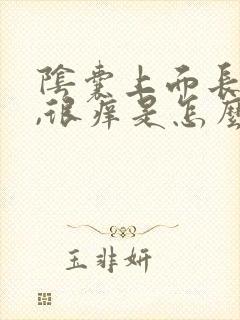 陰囊上而長
,很痒是怎麼
玉非妍